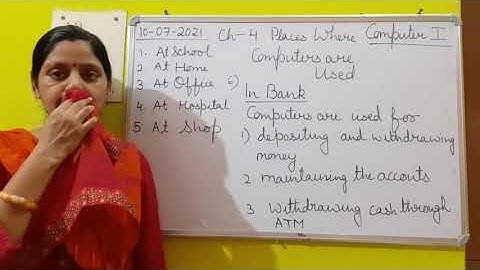 10-07-2021 Ch-4 Places Where Computer I
Computers are
Used
1. At School
2 At Home
3 At Office
4 At Hospital
5 At Shop
6) In Bank
Computers are used for
1) depositing and withdrawing
money
2 maintaining the accounts
3 withdrawing cash through
ATM